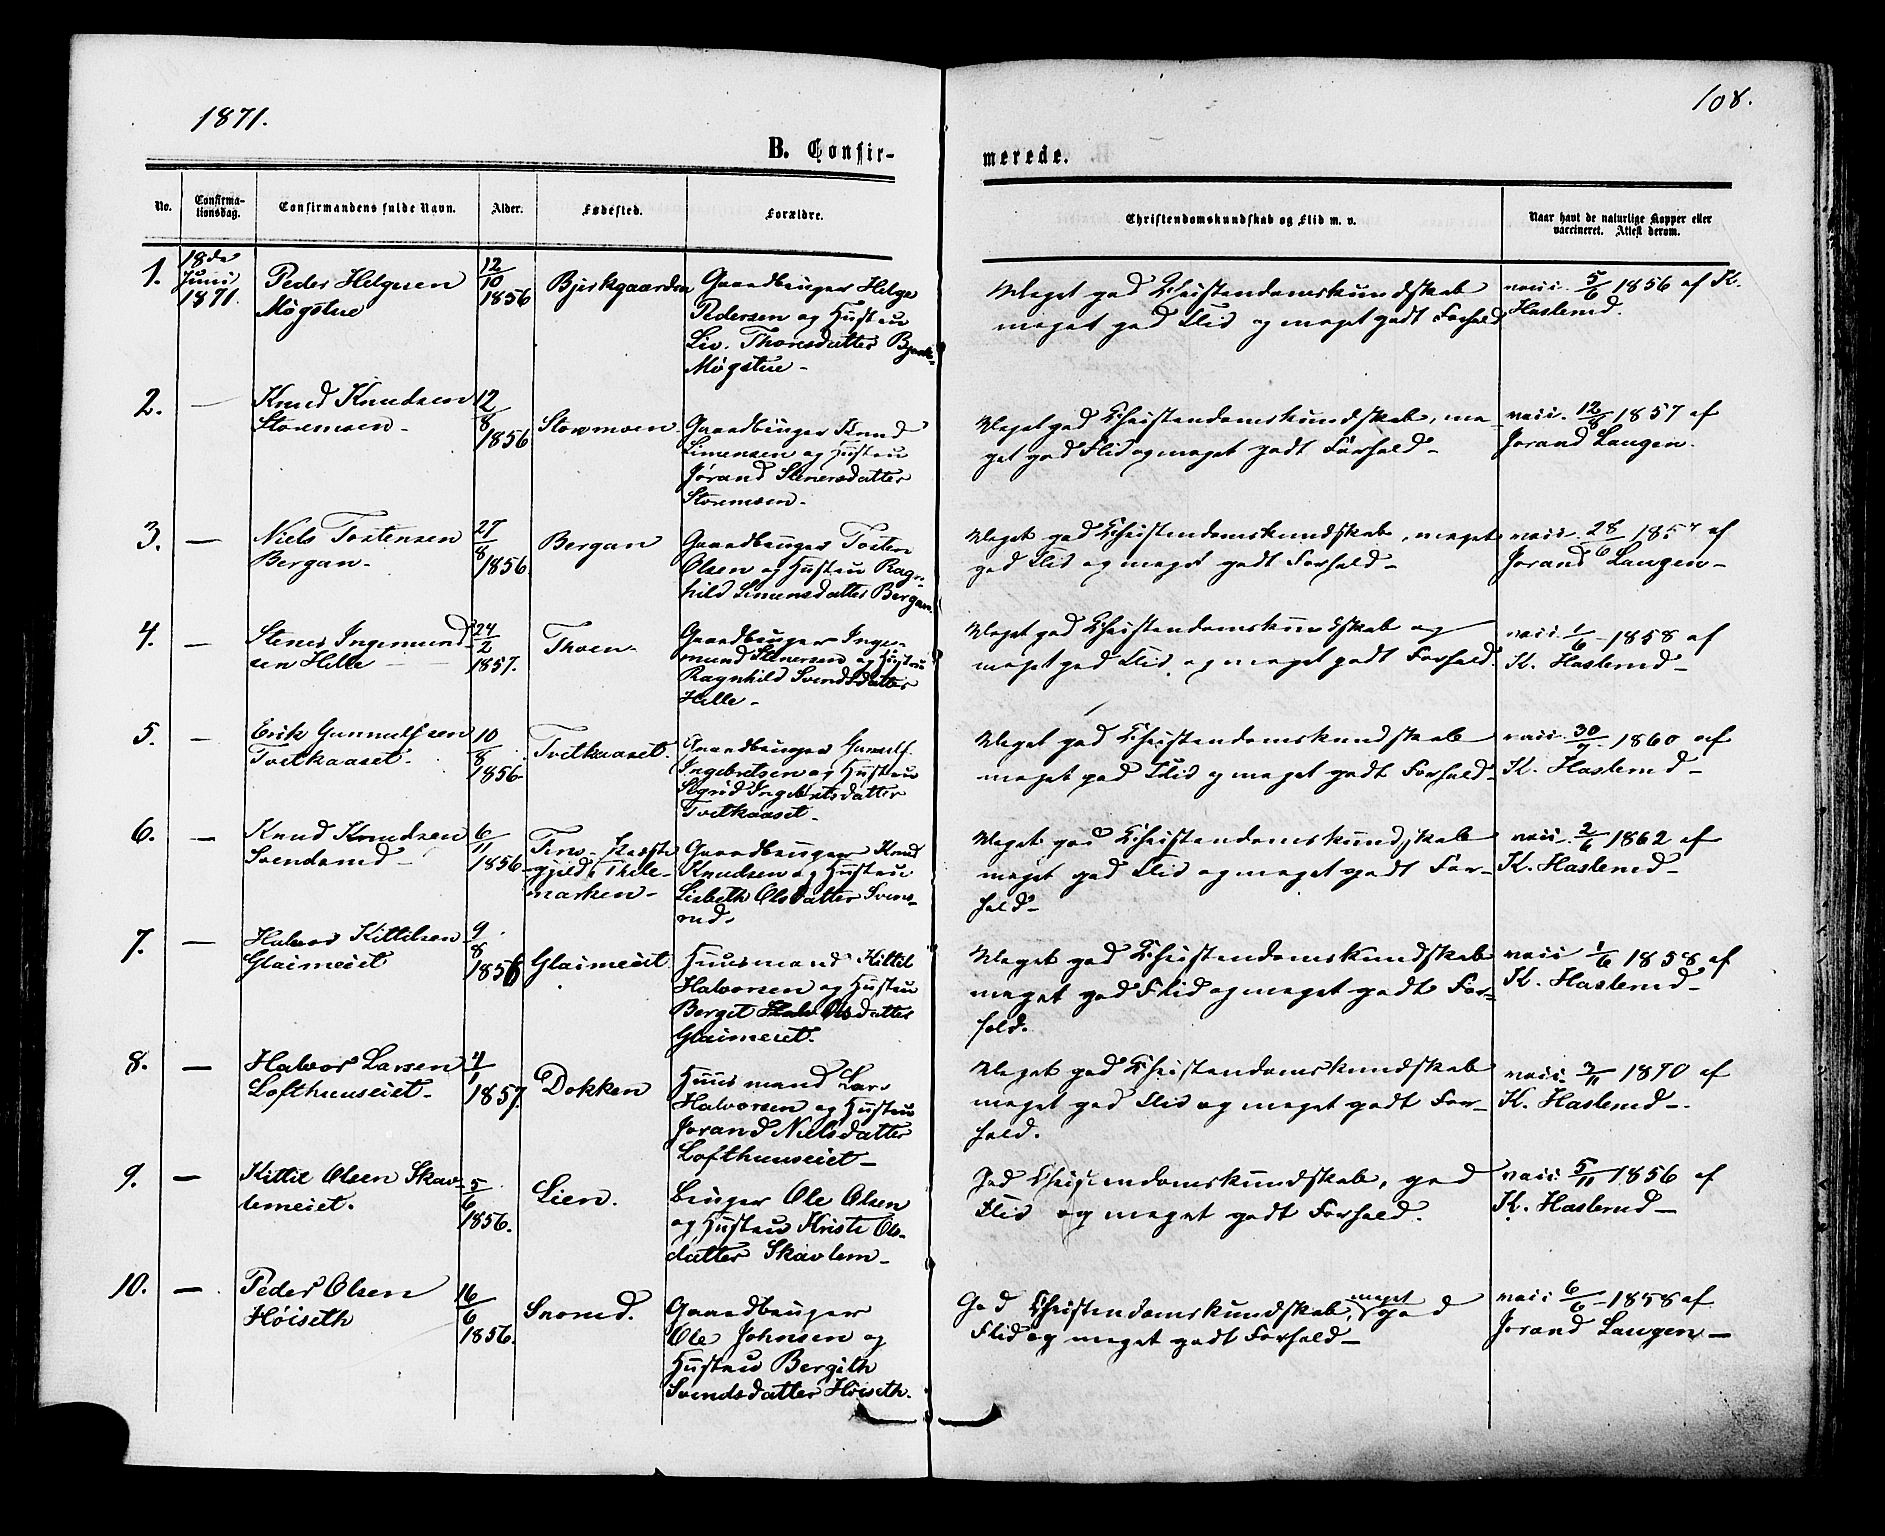 1871.
108.
B. Confir-
merede.
No.
Confirma-
tionsdag.
Confirmandens fulde Navn.
Alder.
Fødested.
Forældre.
Christendomskundskab og Flid m. v.
Naar havt de naturlige Kopper eller
vaccineret. Attest derom.
1.
18de
Juni
1871.
Peder Helgesen
Møgstue
12/10
1856
Bjerkgaarden
Gaardbruger Helge
Pedersen og Hustru
Liv. Thorsdatter
Møgstue -
Meget god Christendomskundskab
meget god Flid og meget godt Forhold
vacc. 5/6 1856 af K.
Haslerud.
2.
—
Knud Knudsen
Storemoen -
12/8
1856
Storemoen -
Gaardbruger Knud
Simensen og Hustru
Jørand Stenersdatter
Storemoen -
Meget god Christendomskundskab, me-
get god Flid og meget godt Forhold -
vacc. 12/8 1857 af
Jorand Laugen.
3.
—
Niels Tostensen
Bergan -
27/8
1856
Bergan
Gaardbruger Tosten
Olsen og Hustru Ragn-
hild Simensdatter Bergan.
Meget god Christendomskundskab, meget
god Flid og meget godt Forhold -
vacc. 28/6 1857 af
Jorand Laugen -
4.
—
Stener Ingemund-
sen Helle
24/2
1857.
Thoen -
Gaardbruger Inge-
mund Stenersen og Hustru
Ragnhild Svendsdatter
Helle -
Meget god Christendomskundskab og
meget god Flid, og meget godt Forhold.
vacc. 1/6 - 1858 af
K. Haslerud -
5.
—
Erik Gunnulfsen
Tvetkaaset -
10/8
1856
Tvetkaaset.
Gaardbruger Gunulf
Ingebretsen og Hustru
Sigrid Ingebretsdatter
Tvetkaaset -
Meget god Christendomskundskab
meget god Flid og meget godt Forhold -
vacc. 30/7 1860 af
K. Haslerud -
6.
—
Knud Knudsen
Svendsrud -
6/11
1856
Tins- Præste-
gjeld, Thele-
marken -
Gaardbruger Knud
Knudsen og Hustru
Lisbeth Olsdatter Svens-
rud.
Meget god Christendomskundskab
meget god Flid og meget godt For-
hold -
vacc. 2/6 1862 af
K. Haslerud -
7.
—
Halvor Kittilsen
Glaimeiet
9/8
1856
Glaimeiet.
Huusmand Kittil
Halvorsen og Hustru
Bergit Olsdatter
Glaimeiet.
Meget god Christendomskundskab
meget god Flid og meget godt For-
hold.
vacc 1/6 1858 af
K. Haslerud -
8.
—
Halvor Larsen
Lofthuuseiet -
4/1
1857.
Dokken
Huusmand Lars
Halvorsen og Hustru
Jorand Nielsdatter
Lofthuuseiet -
Meget god Christendomskundskab
meget god Flid og meget godt For-
hold.
1870 af
K. Haslerud -
9.
—
Kittil Olsen Skav-
lemeiet.
5/6
1856.
Lien.
Bruger Ole Olsen
og Hustru Kristi Ols-
datter Skavlem -
God Christendomskundskab, god
Flid og meget godt Forhold.
vacc 5/11 1856 af
K. Haslerud -
10.
—
Peder Olsen
Høiseth
16/6
1856.
Snorud.
Gaardbruger
Ole Johnsen og
Hustru Bergith
Svendsdatter Høiseth.
God Christendomskundskab, meget god
Flid og meget godt Forhold -
vacc 6/6 - 1858 af
Jorand Laugen -